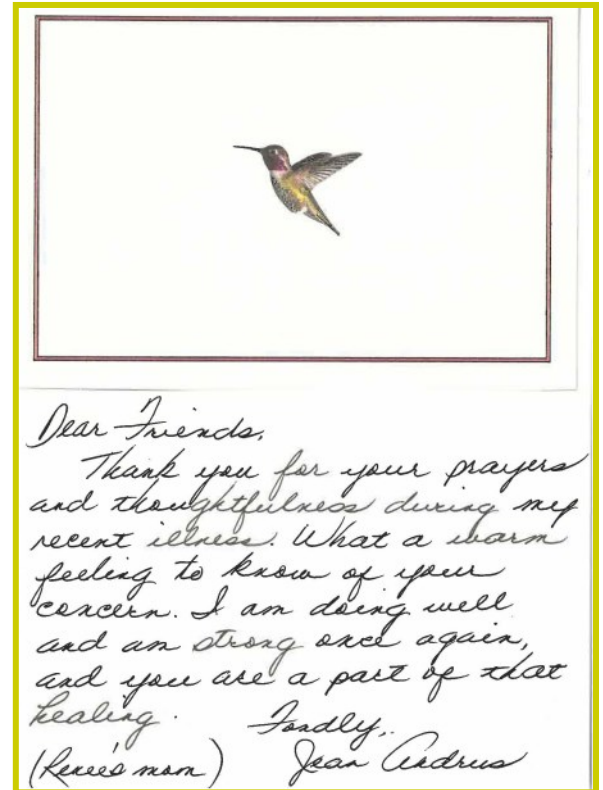 Dear Friends,
Thank you for your prayers
and thoughtfulness during my
recent illness. What a warm
feeling to know of your
concern. I am doing well
and am strong once again,
and you are a part of that
healing.
Fondly,
(Renee's mom) Jean Andrus